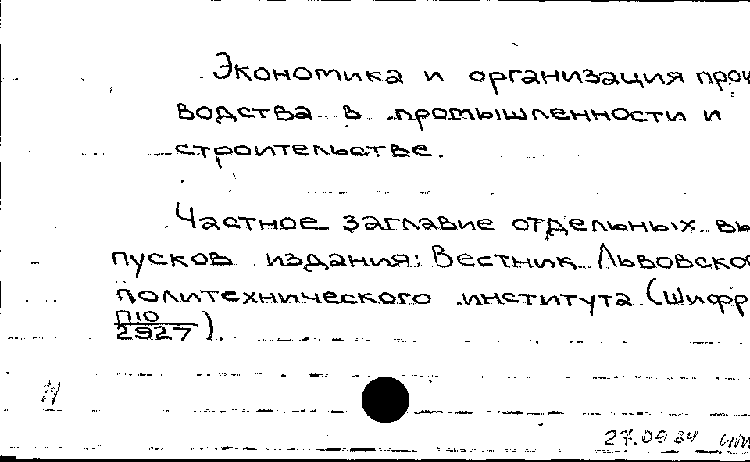 Экономика и организация прои
водства в промышленности и
строительстве.
Частное заглавие отдельных вы
пусков издания: Вестник Львовско
политехнического института (Шифр
П10
2927).